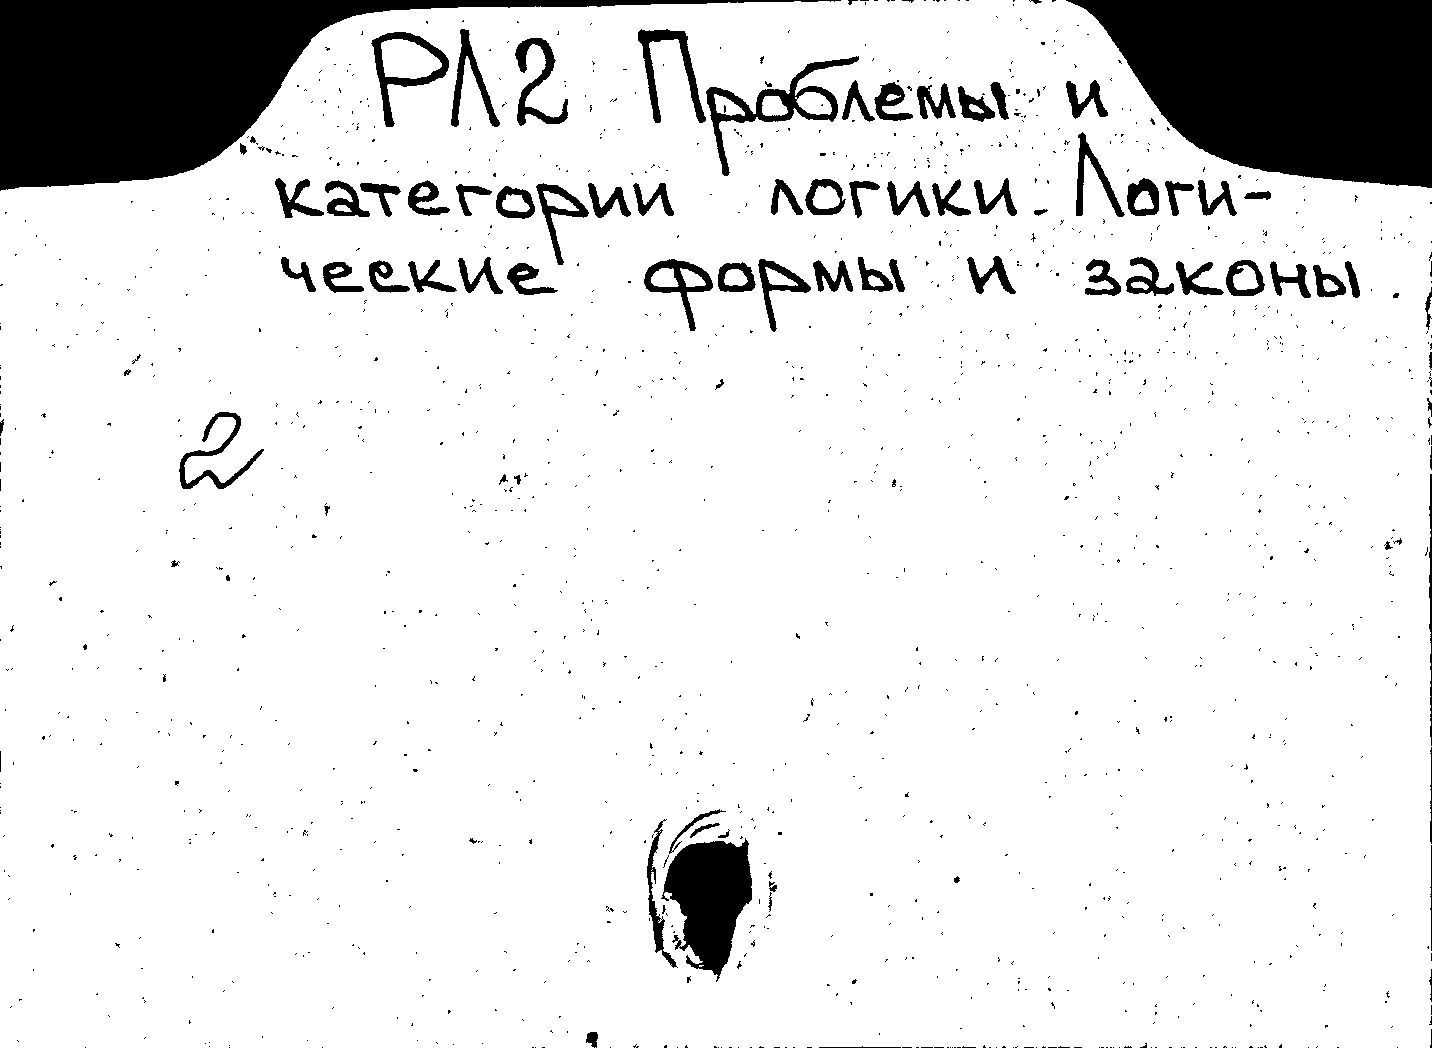 РЛ2 Проблемы и
категории логики. Логи-
ческие формы и законы.
2